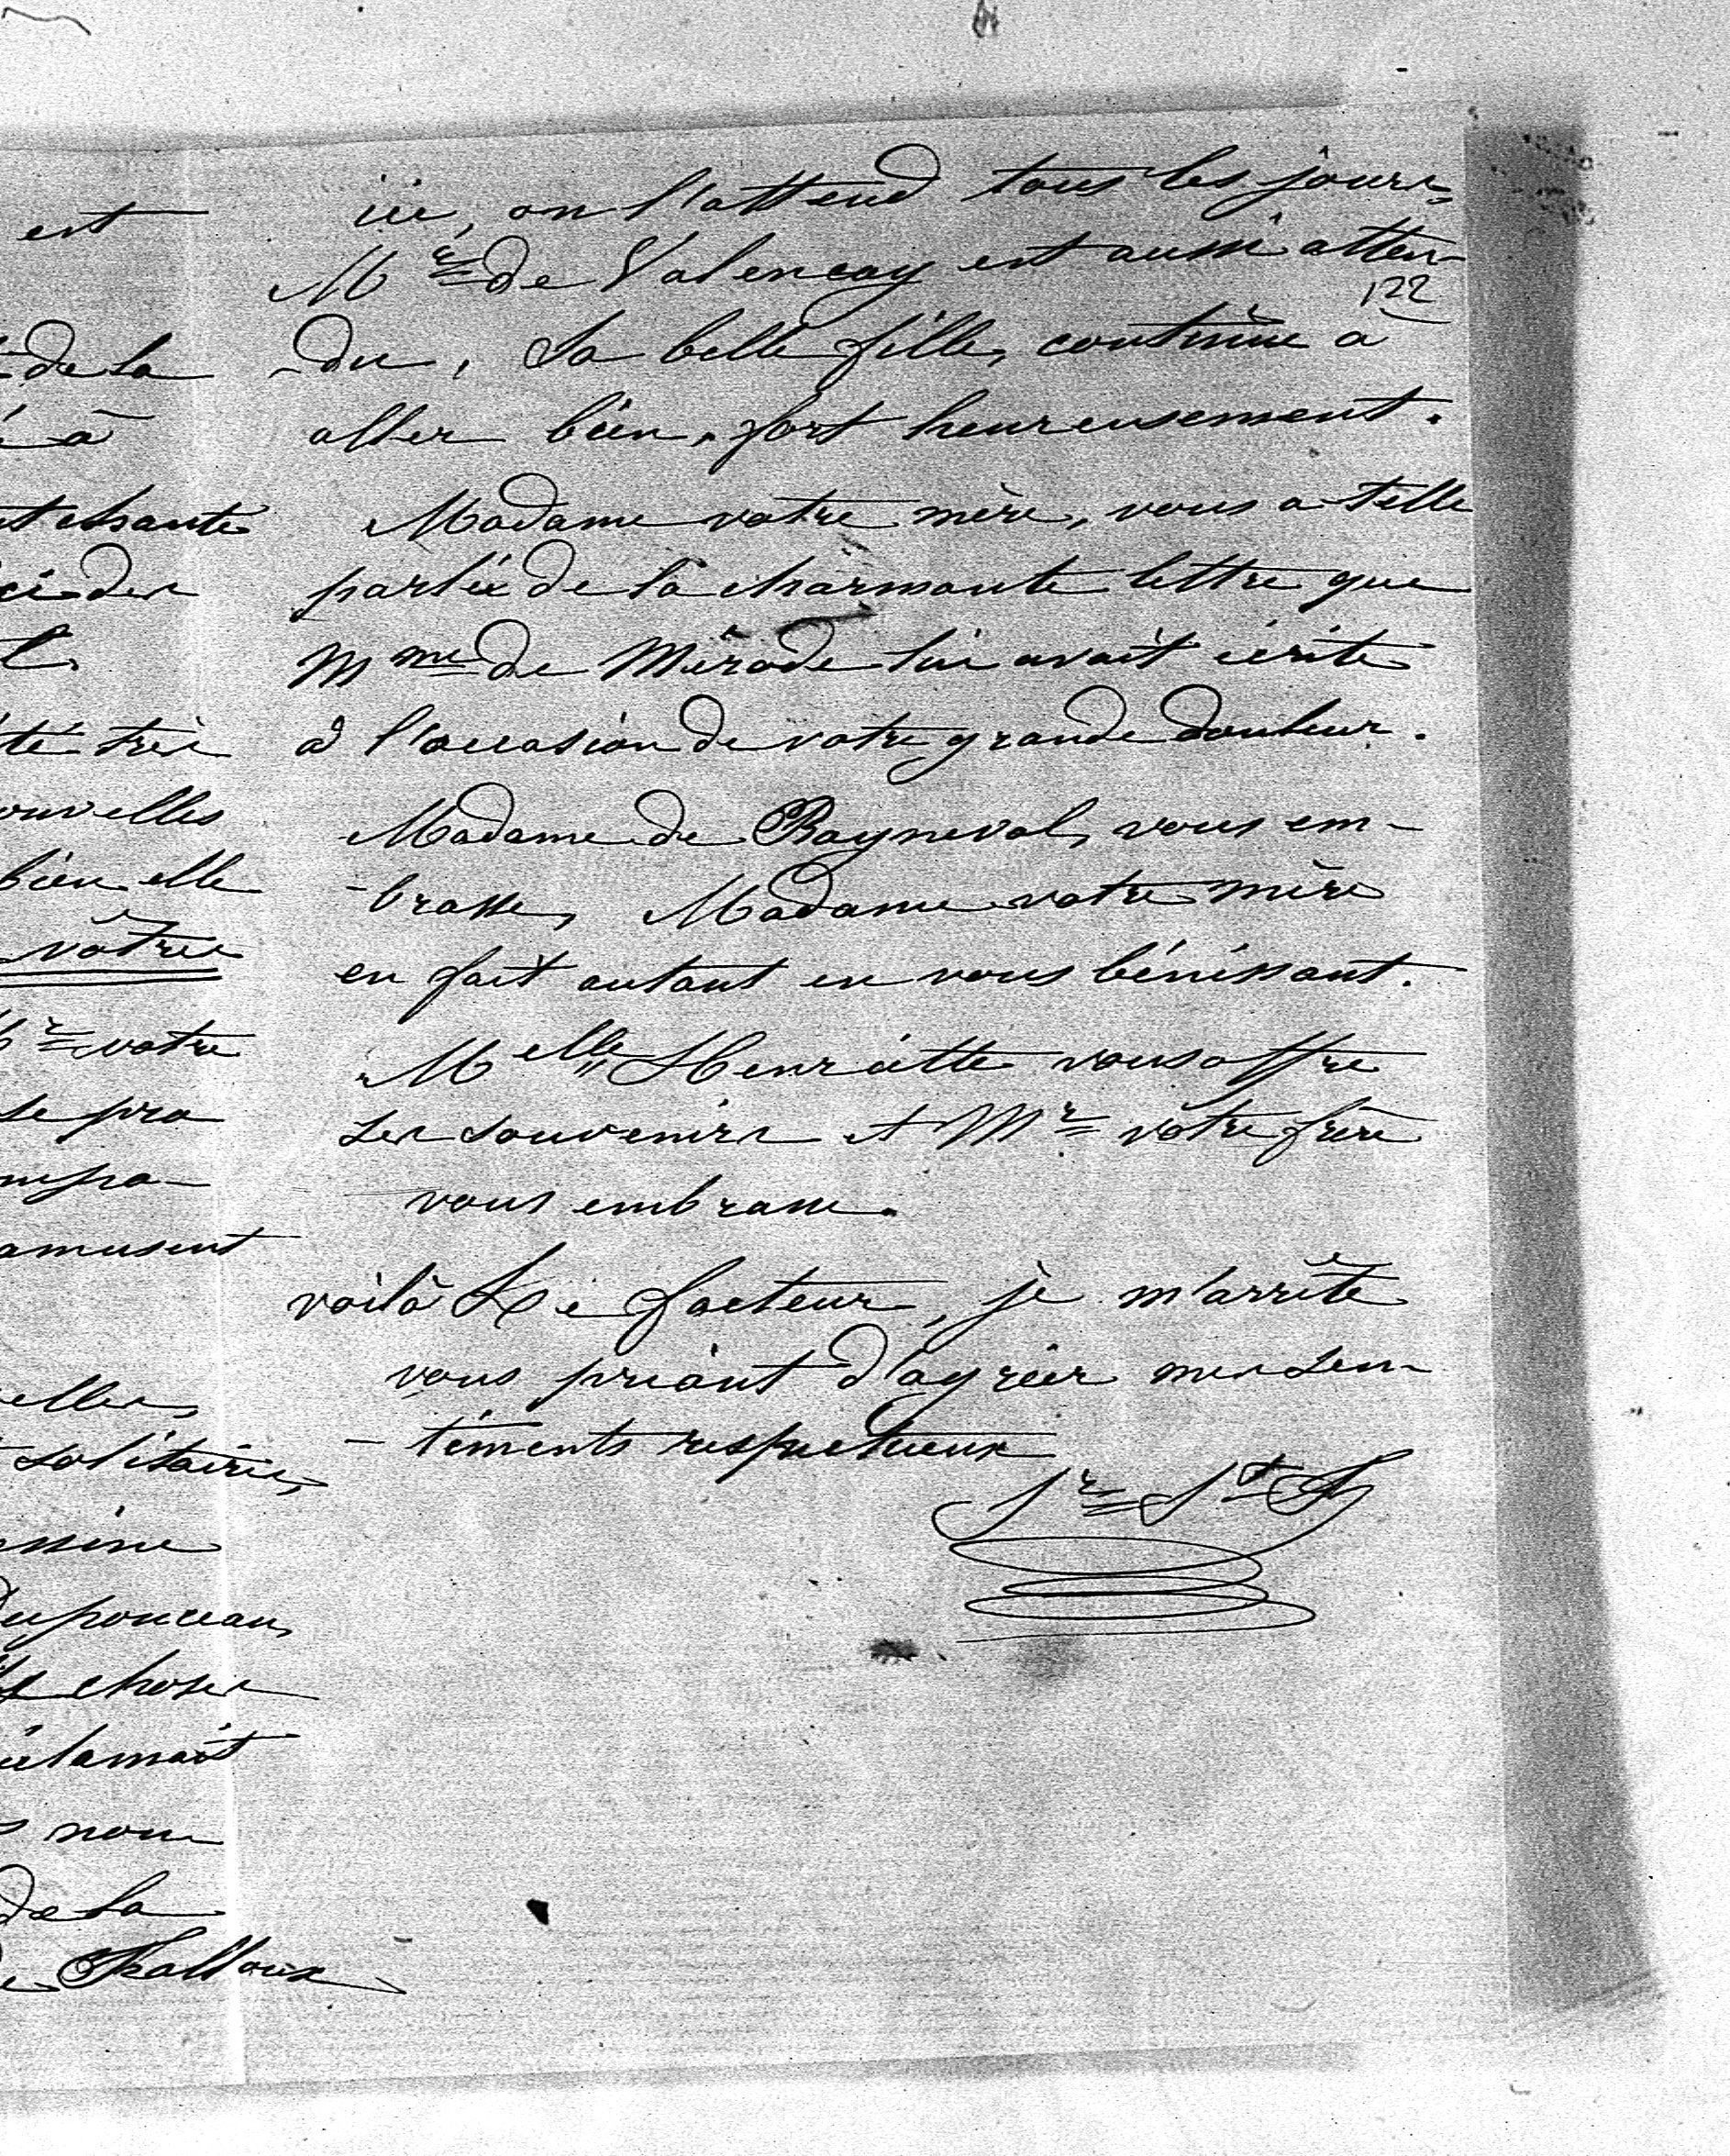 est
de la
à
et chante
ci des
té très
nouvelles
bien elle
vôtre
Mr votre
se pro
amusent
elles,
solitaire,
Duponceau,
choses
nom
de la
de Falloux
ici, on l'attend tous les jours
Mr de Valençay est aussi atten-
122
-du, Sa belle fille, continüe à
aller bien, fort heureusement.
Madame votre mère, vous a telle
parlée de la charmante lettre que
Mme de Mérode lui avait écrite
à l'occasion de votre grande douleur.
Madame de Rayneval, vous em-
-brasse, Madame votre mère
en fait autant en vous bénissant.
Melle Henriette vous offre
ses souvenirs et Mr votre frère
vous embrasse.
voilà Le facteur, je m'arrête
vous priant d'agréer mes sen-
-timents respectueux
Sr St